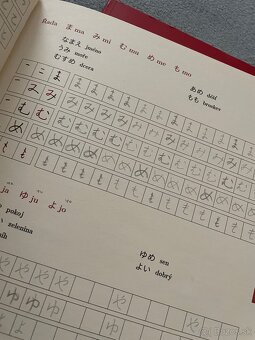 Řada ま ma み mi む mu め me も mo
なまえ jméno
うみ moře
むすめ dcera
あめ déšť
もも broskev
ま ま ま ま ま ま ま ま ま ま
み み み み み み み み み み
む む む む む む む む む む
め め め め め め め め め め
も も も も も も も も も も
ja ゆ ju よ jo
pokoj
zelenina
ゆめ sen
よい dobrý
や や や や
ゆ ゆ ゆ